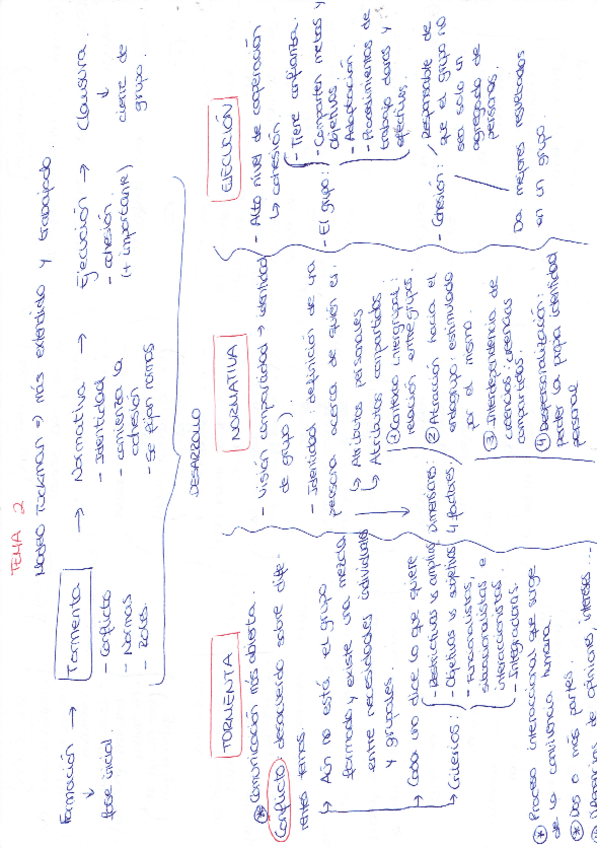 TEMA 2
Modelo Tuckman => más extendido y trabajado.
Formación →
↓
fase inicial.
Tormenta →
- Conflicto
- Normas
- Roles.
Normativa →
- Identidad
- comienza la
cohesión
- Se fijan normas
Ejecución →
- cohesión
(+ importante)
Clausura.
↓
cierre de
grupo.
DESARROLLO
TORMENTA
* Comunicación más abierta.
Conflicto: desacuerdo sobre dife-
rentes temas.
→ Aún no está el grupo
formado y existe una mezcla
entre necesidades individuales
y grupales.
→ Cada uno dice lo que quiere
→ Criterios:
- Restrictivas vs amplias
- Objetivas vs subjetivas
- Funcionalistas,
situacionalistas e
interaccionistas.
- Integradoras.
* Proceso interaccional que surge
de la convivencia humana.
* Dos o más partes.
* opiniones, intereses...
NORMATIVA
- Visión compartida → identidad
de grupo).
- Identidad: definición de una
persona acerca de quién es.
↳ Atributos personales
↳ Atributos compartidos
Dimensiones:
4 factores.
① Contexto intergrupal:
relación entre grupos.
② Atracción hacia el
endogrupo: estimulado
por el mismo.
③ Interdependencia de
creencias: creencias
compartidas.
④ Despersonalización:
perder la propia identidad
personal
EJECUCIÓN
- Alto nivel de cooperación
↳ cohesión.
- El grupo:
- Tiene confianza.
- Comparten metas y
objetivos
- Adaptación.
- Procedimientos de
trabajo claros y
efectivos.
- Cohesión:
Responsable de
que el grupo no
sea solo un
agregado de
personas.
Da mejores resultados
en un grupo.